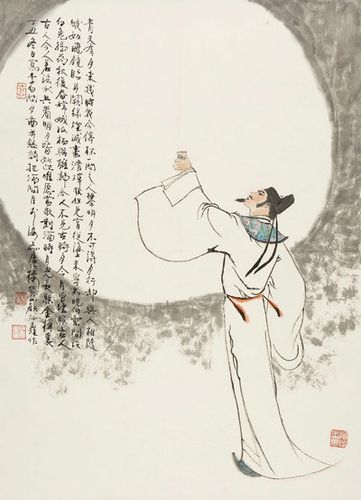 青天有月來幾時我今停杯一問之人攀明月不可得月行卻與人相隨
皎如飛鏡臨丹闕綠煙滅盡清輝發但見宵從海上來寧知曉向雲間沒
白兔搗藥秋復春嫦娥孤棲與誰鄰今人不見古時月今月曾經照古人
古人今人若流水共看明月皆如此唯願當歌對酒時月光長照金樽裏
丁丑冬日寫李白 把酒問月於海上 顧炳鑫作